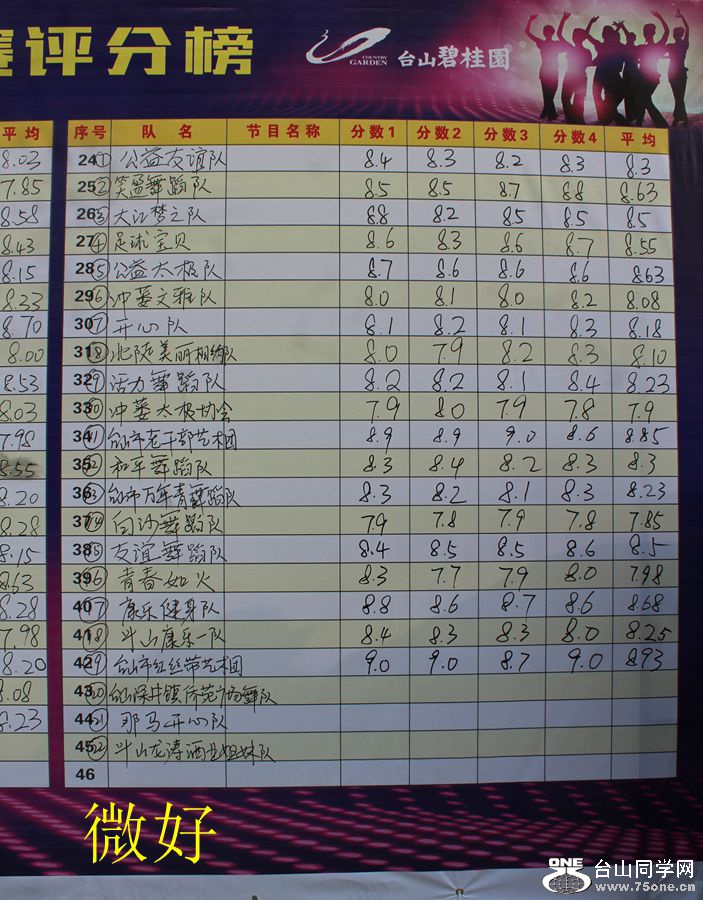 赛评分榜
COUNTRY GARDEN 台山碧桂園
平均 序号 队 名 节目名称 分数1 分数2 分数3 分数4 平均
8.03 24 ① 公益友谊队 8.4 8.3 8.2 8.3 8.3
7.85 25 ② 笑盈舞蹈队 8.5 8.5 8.7 8.8 8.63
8.58 26 ③ 大江梦之队 8.8 8.2 8.5 8.5 8.5
8.43 27 ④ 足球宝贝 8.6 8.3 8.6 8.7 8.55
8.15 28 ⑤ 公益太极队 8.7 8.6 8.6 8.6 8.63
8.23 29 ⑥ 冲蒌文雅队 8.0 8.1 8.0 8.2 8.08
8.70 30 ⑦ 开心队 8.1 8.2 8.1 8.3 8.18
8.00 31 ⑧ 北陡美丽相约队 8.0 7.9 8.2 8.3 8.10
8.53 32 ⑨ 活力舞蹈队 8.2 8.2 8.1 8.4 8.23
8.03 33 ⑩ 冲蒌太极协会 7.9 8.0 7.9 7.8 7.9
7.98 34 ⑪ 台山市老干部艺术团 8.9 8.9 9.0 8.6 8.85
8.55 35 ⑫ 和平舞蹈队 8.3 8.4 8.2 8.3 8.3
8.20 36 ⑬ 台山市万年青舞蹈队 8.3 8.2 8.1 8.3 8.23
8.28 37 ⑭ 白沙舞蹈队 7.9 7.8 7.9 7.8 7.85
8.15 38 ⑮ 友谊舞蹈队 8.4 8.5 8.5 8.6 8.5
8.63 39 ⑯ 青春如火 8.3 7.7 7.9 8.0 7.98
8.28 40 ⑰ 康乐健身队 8.8 8.6 8.7 8.6 8.68
7.98 41 ⑱ 斗山康乐一队 8.4 8.3 8.3 8.0 8.25
8.20 42 ⑲ 台山市红丝带艺术团 9.0 9.0 8.7 9.0 8.93
8.08 43 ⑳ 台山深井镇广场舞队
8.23 44 ㉑ 那马开心队
45 ㉒ 斗山龙涛酒业姐妹队
46
微好
ONE 台山同学网
www.75one.cn